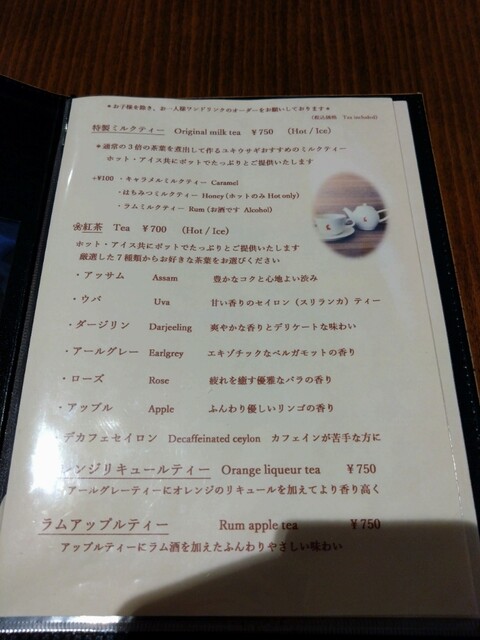 ＊お子様を除き、お一人様ワンドリンクのオーダーをお願いしております＊
(税込価格 Tax included)
特製ミルクティー Original milk tea ¥750 (Hot / Ice)
＊通常の３倍の茶葉を煮出して作るユキウサギおすすめのミルクティー
ホット・アイス共にポットでたっぷりとご提供いたします
+¥100 ・キャラメルミルクティー Caramel
・はちみつミルクティー Honey (ホットのみ Hot only)
・ラムミルクティー Rum (お酒です Alcohol)
紅茶 Tea ¥700 (Hot / Ice)
ホット・アイス共にポットでたっぷりとご提供いたします
厳選した７種類からお好きな茶葉をお選びください
・アッサム Assam 豊かなコクと心地よい渋み
・ウバ Uva 甘い香りのセイロン（スリランカ）ティー
・ダージリン Darjeeling 爽やかな香りとデリケートな味わい
・アールグレー Earlgrey エキゾチックなベルガモットの香り
・ローズ Rose 疲れを癒す優雅なバラの香り
・アップル Apple ふんわり優しいリンゴの香り
・デカフェセイロン Decaffeinated ceylon カフェインが苦手な方に
レンジリキュールティー Orange liqueur tea ¥750
アールグレーティーにオレンジのリキュールを加えてより香り高く
ラムアップルティー Rum apple tea ¥750
アップルティーにラム酒を加えたふんわりやさしい味わい